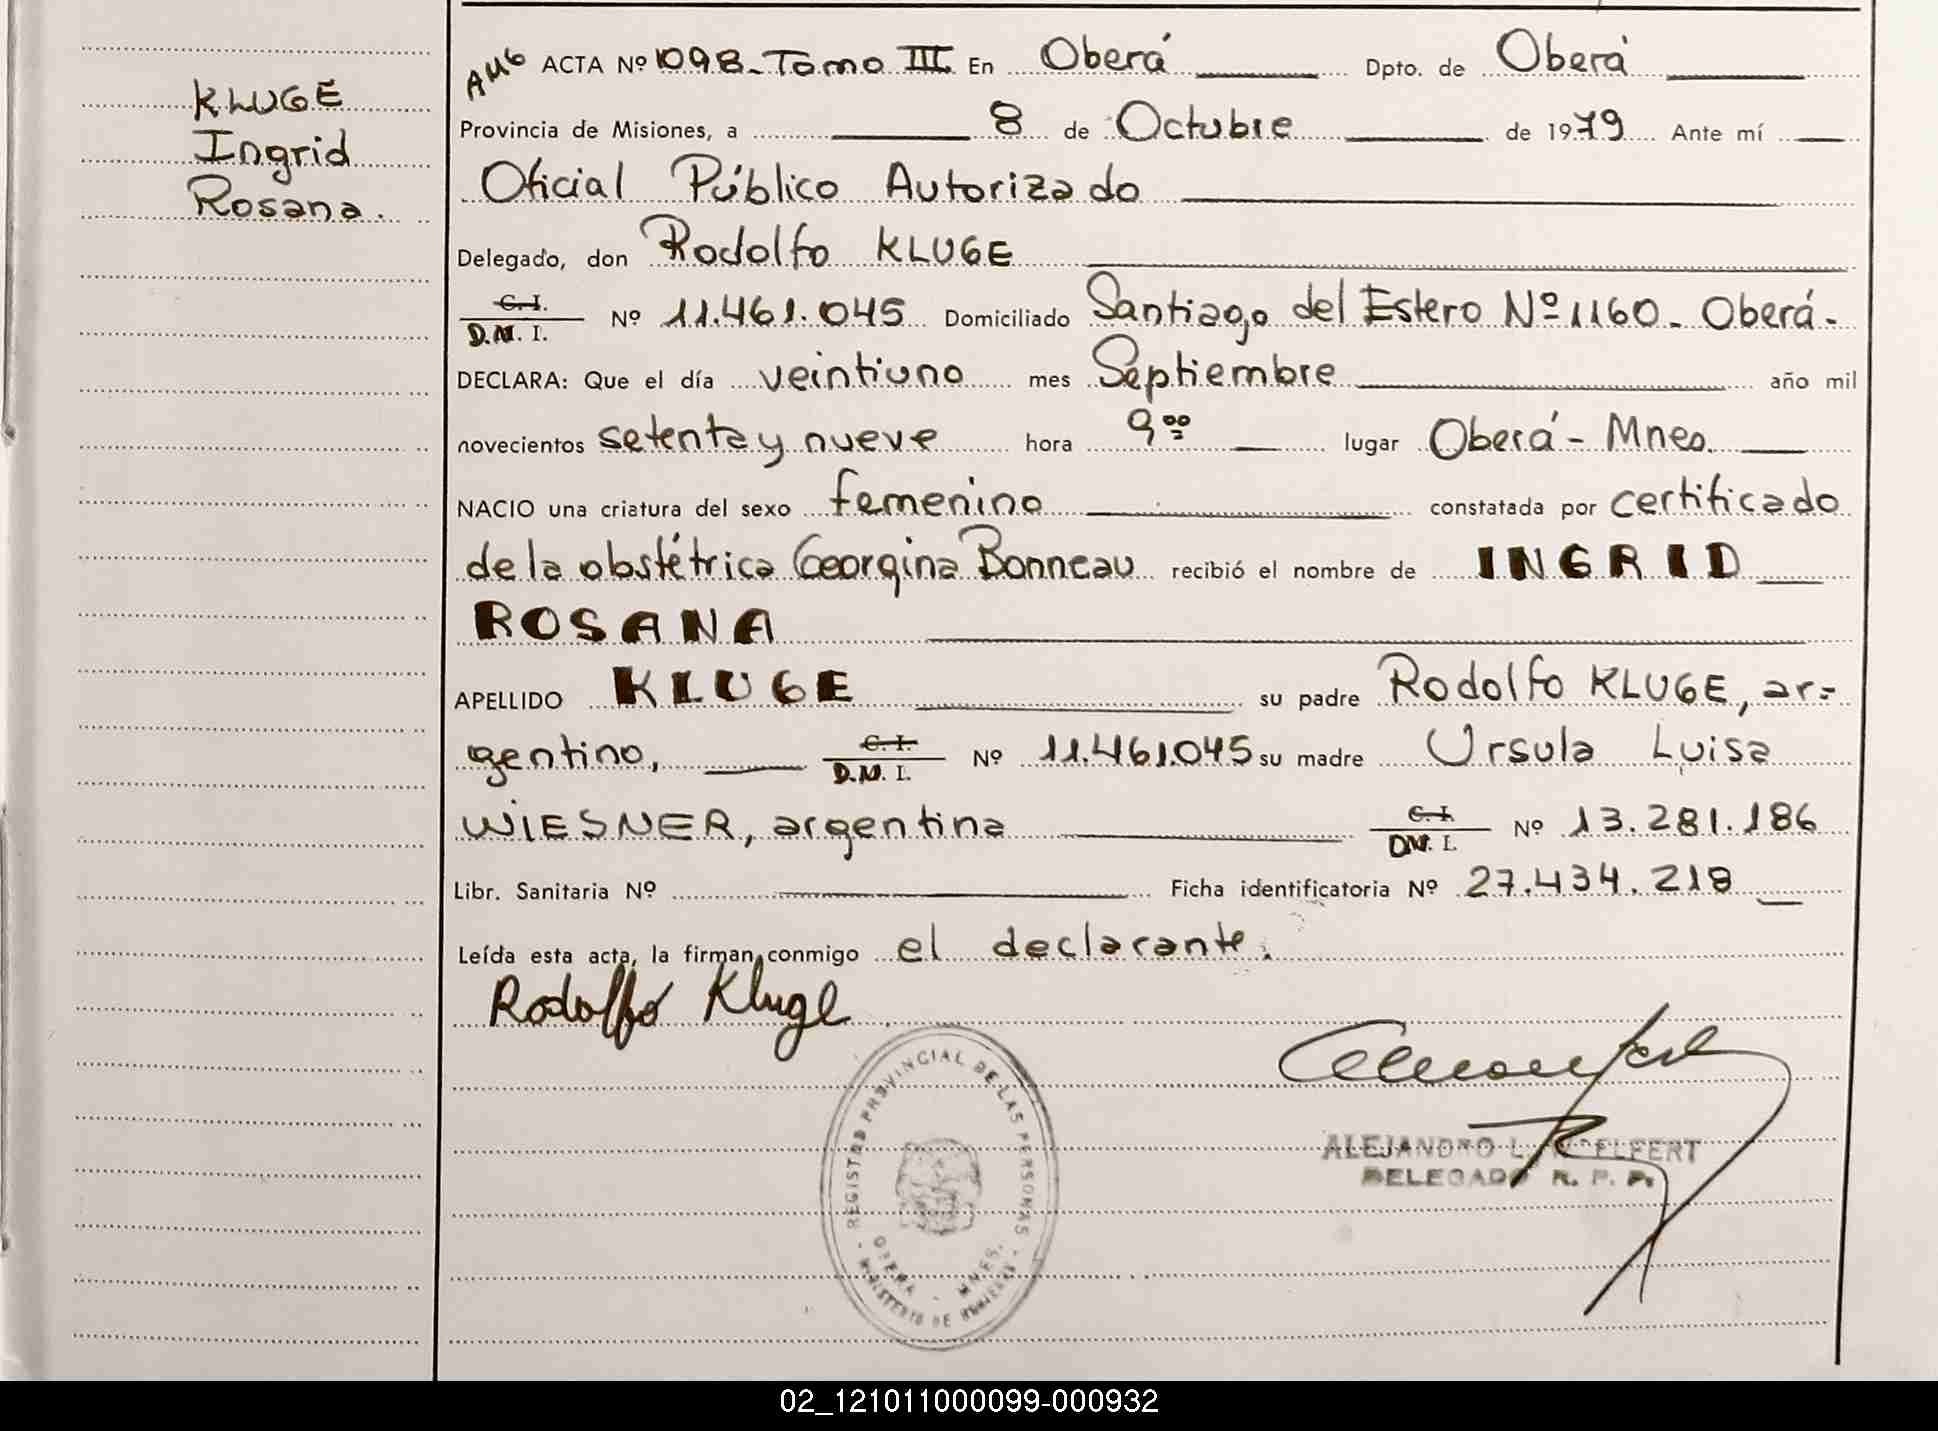 KLUGE
Ingrid
Rosana.
ACTA Nº 1098 - Tomo III En Oberá Dpto. de Oberá
Provincia de Misiones, a 8 de Octubre de 1979 Ante mí
Oficial Público Autorizado
Delegado, don Rodolfo KLUGE
C.I.
D.N.I. Nº 11.461.045 Domiciliado Santiago del Estero Nº 1160 - Oberá -
DECLARA: Que el día veintiuno mes Septiembre año mil
novecientos setenta y nueve hora 9 00 lugar Oberá - Mnes.
NACIO una criatura del sexo femenino constatada por certificado
de la obstétrica Georgina Bonneau recibió el nombre de INGRID
ROSANA
APELLIDO KLUGE su padre Rodolfo KLUGE, ar=
gentino, C.I. D.N.I. Nº 11.461.045 su madre Ursula Luisa
WIESNER, argentina C.I. D.N.I. Nº 13.281.186
Libr. Sanitaria Nº Ficha identificatoria Nº 27.434.218
Leída esta acta, la firman conmigo el declarante.
Rodolfo Kluge
REGISTRO PROVINCIAL DE LAS PERSONAS
OBERA - MNES.
MINISTERIO DE
ALEJANDRO L.
DELEGADO R. P. P.
02_121011000099-000932